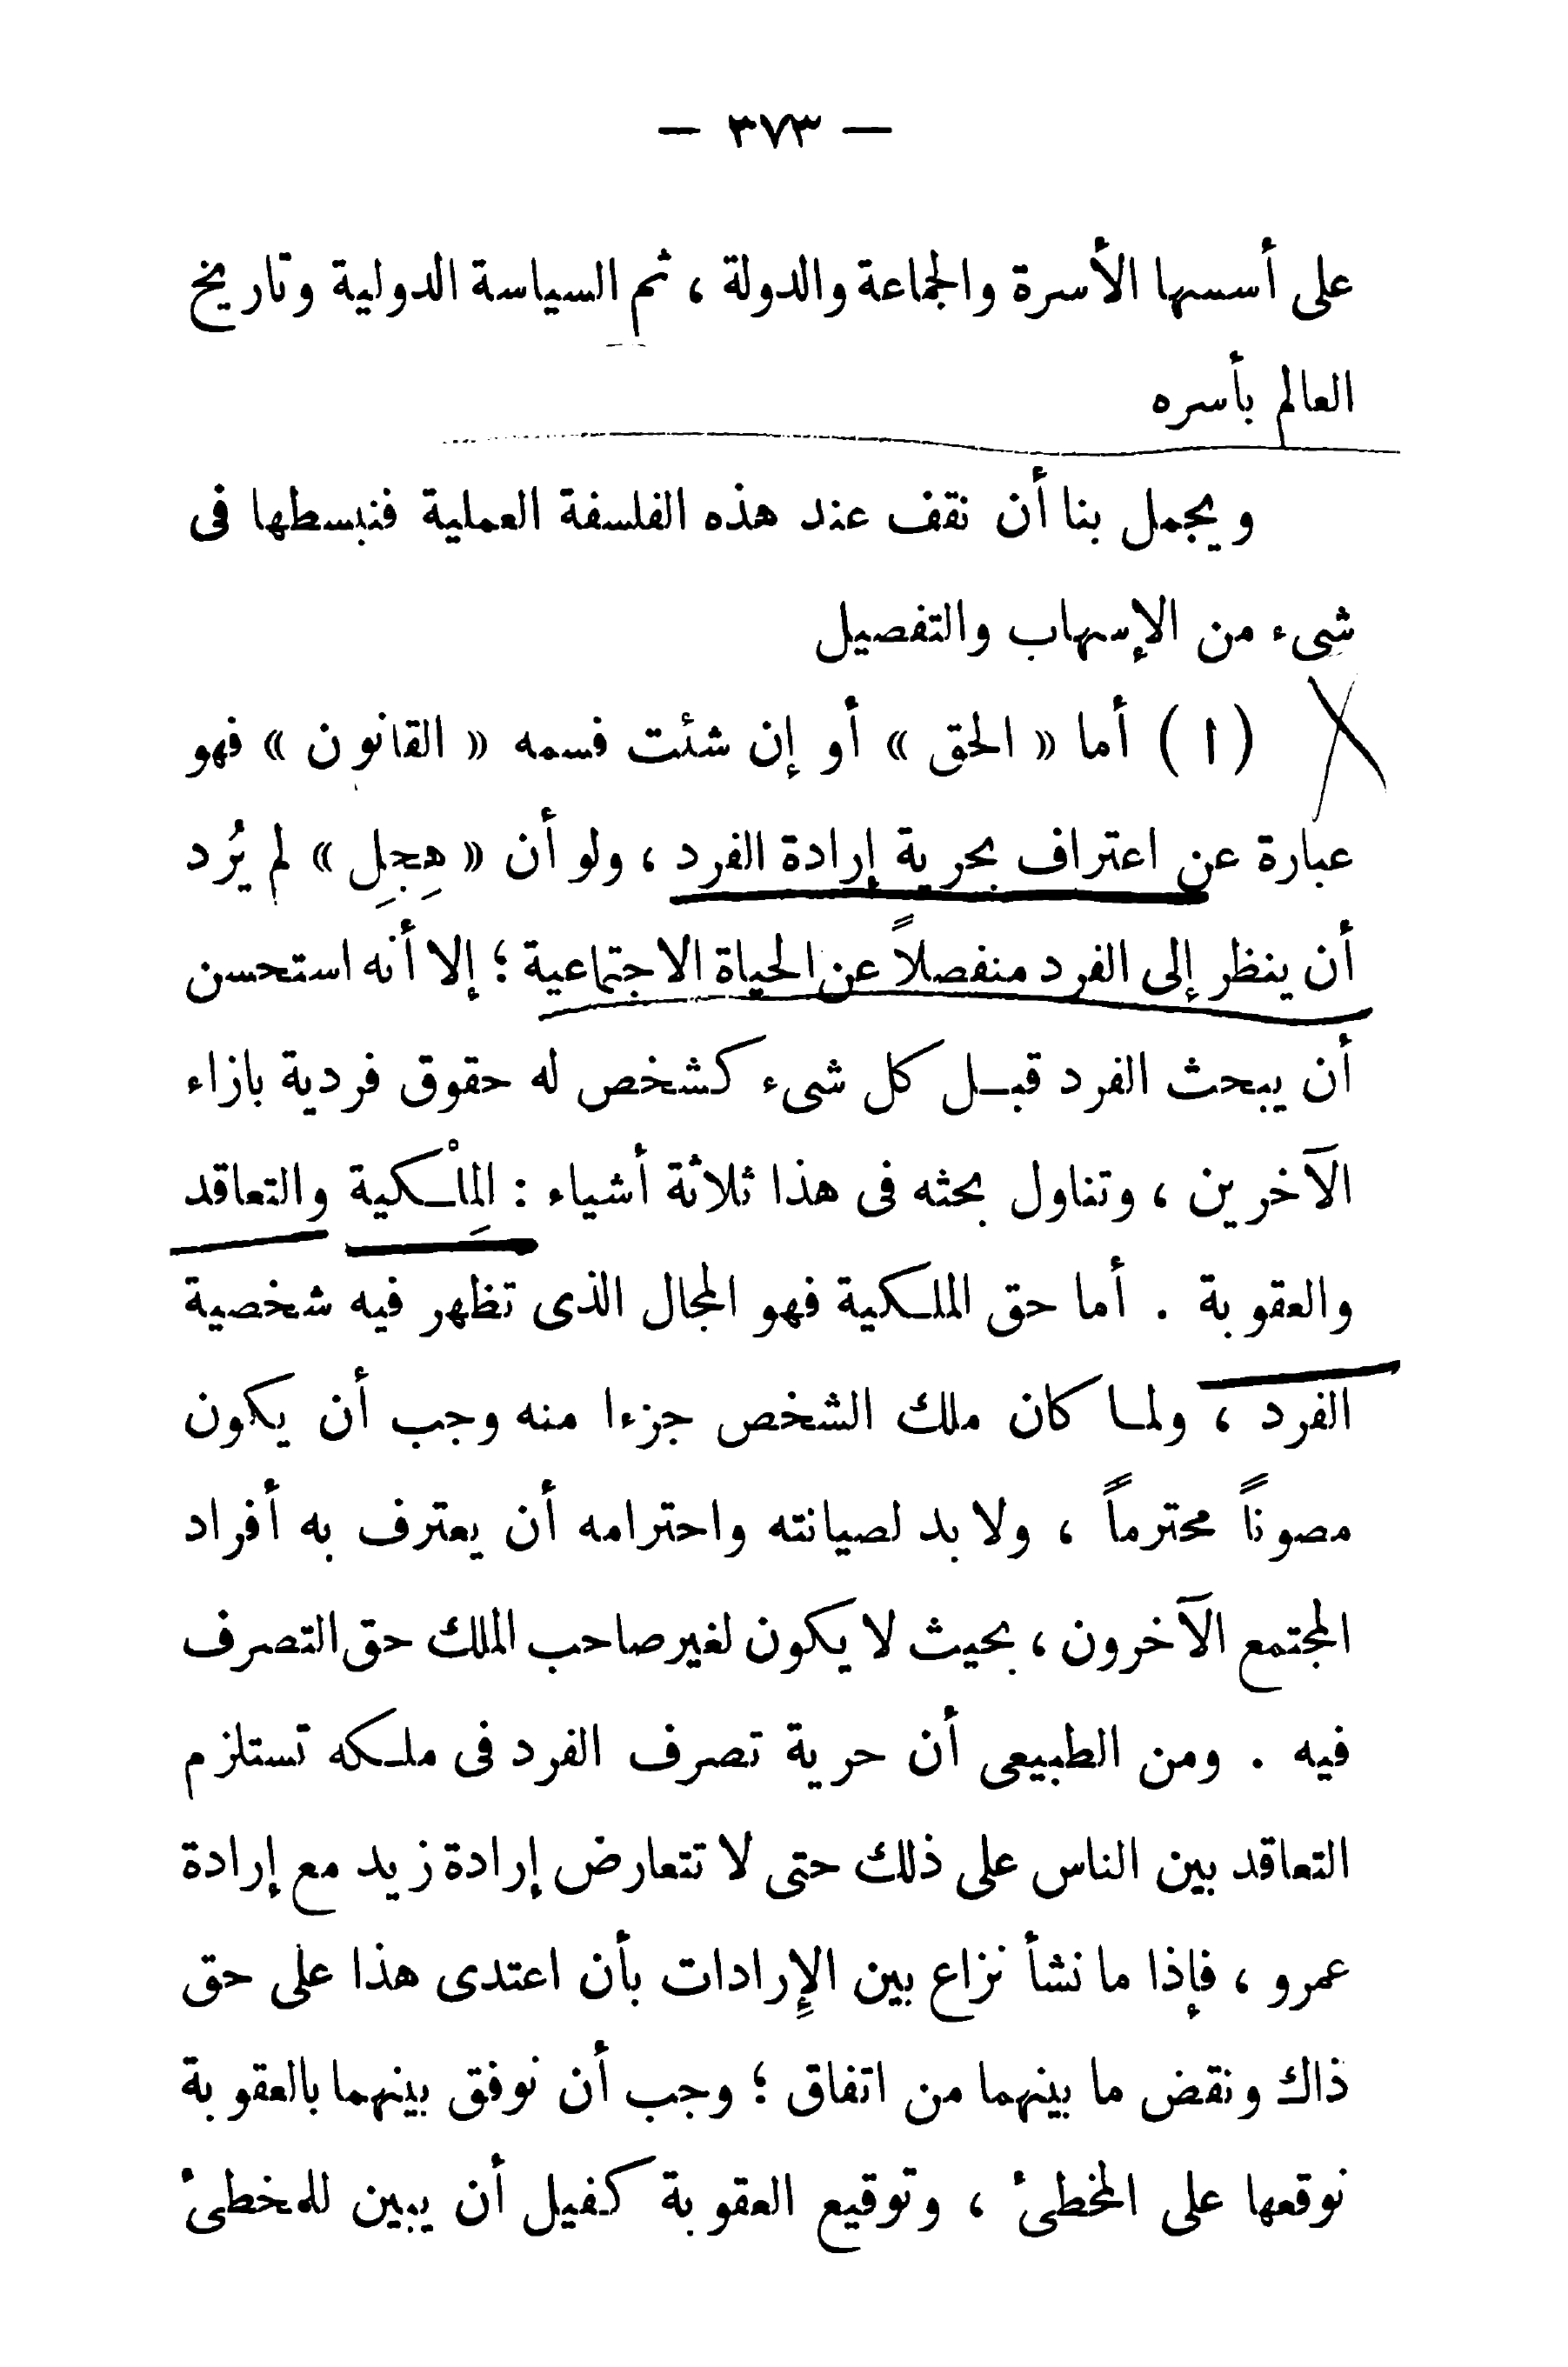 — ٣٧٣ —
على أسسها الأسرة والجماعة والدولة ، ثم السياسة الدولية وتاريخ
العالم بأسره
ويجمل بنا أن نقف عند هذه الفلسفة العملية فنبسطها فى
شىء من الإسهاب والتفصيل
( ا ) أما « الحق » أو إن شئت فسمه « القانون » فهو
عبارة عن اعتراف بحرية إرادة الفرد ، ولو أن « هِجِل » لم يُرد
أن ينظر إلى الفرد منفصلاً عن الحياة الاجتماعية ؛ إلا أنه استحسن
أن يبحث الفرد قبـل كل شىء كشخص له حقوق فردية بازاء
الآخرين ، وتناول بحثه فى هذا ثلاثة أشياء : المِلْـكية والتعاقد
والعقوبة . أما حق الملـكية فهو المجال الذى تظهر فيه شخصية
الفرد ، ولمـا كان ملك الشخص جزءا منه وجب أن يكون
مصوناً محترماً ، ولا بد لصيانته واحترامه أن يعترف به أفراد
المجتمع الآخرون ، بحيث لا يكون لغير صاحب الملك حق التصرف
فيه . ومن الطبيعى أن حرية تصرف الفرد فى ملـكه تستلزم
التعاقد بين الناس على ذلك حتى لا تتعارض إرادة زيد مع إرادة
عمرو ، فإذا ما نشأ نزاع بين الإِرادات بأن اعتدى هذا على حق
ذاك ونقض ما بينهما من اتفاق ؛ وجب أن نوفق بينهما بالعقوبة
نوقعها على المخطىْ ، وتوقيع العقوبة كفيل أن يبين للمخطىْ